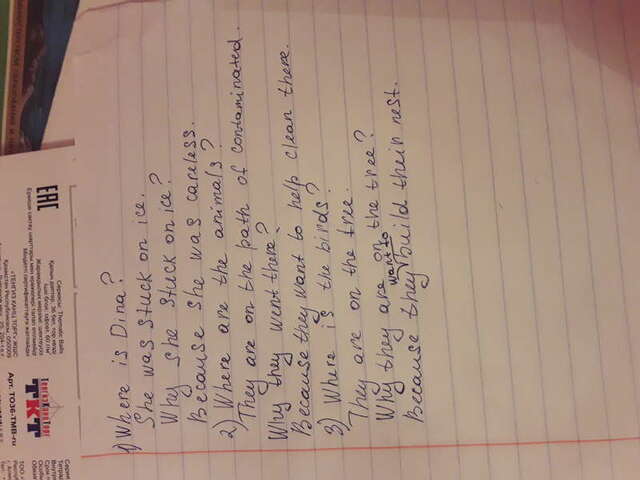 Арт. TO3T-TMB-ru
ТКТ
ЕАС
1) Where is Dina?
She was stuck on ice.
Why she stuck on ice?
Because she was careless.
2) Where are the animals?
They are on the path of contaminated.
Why they went there?
Because they want to help clean there.
3) Where is the birds?
They are on the tree.
Why they are on the tree?
Because they want to build their nest.